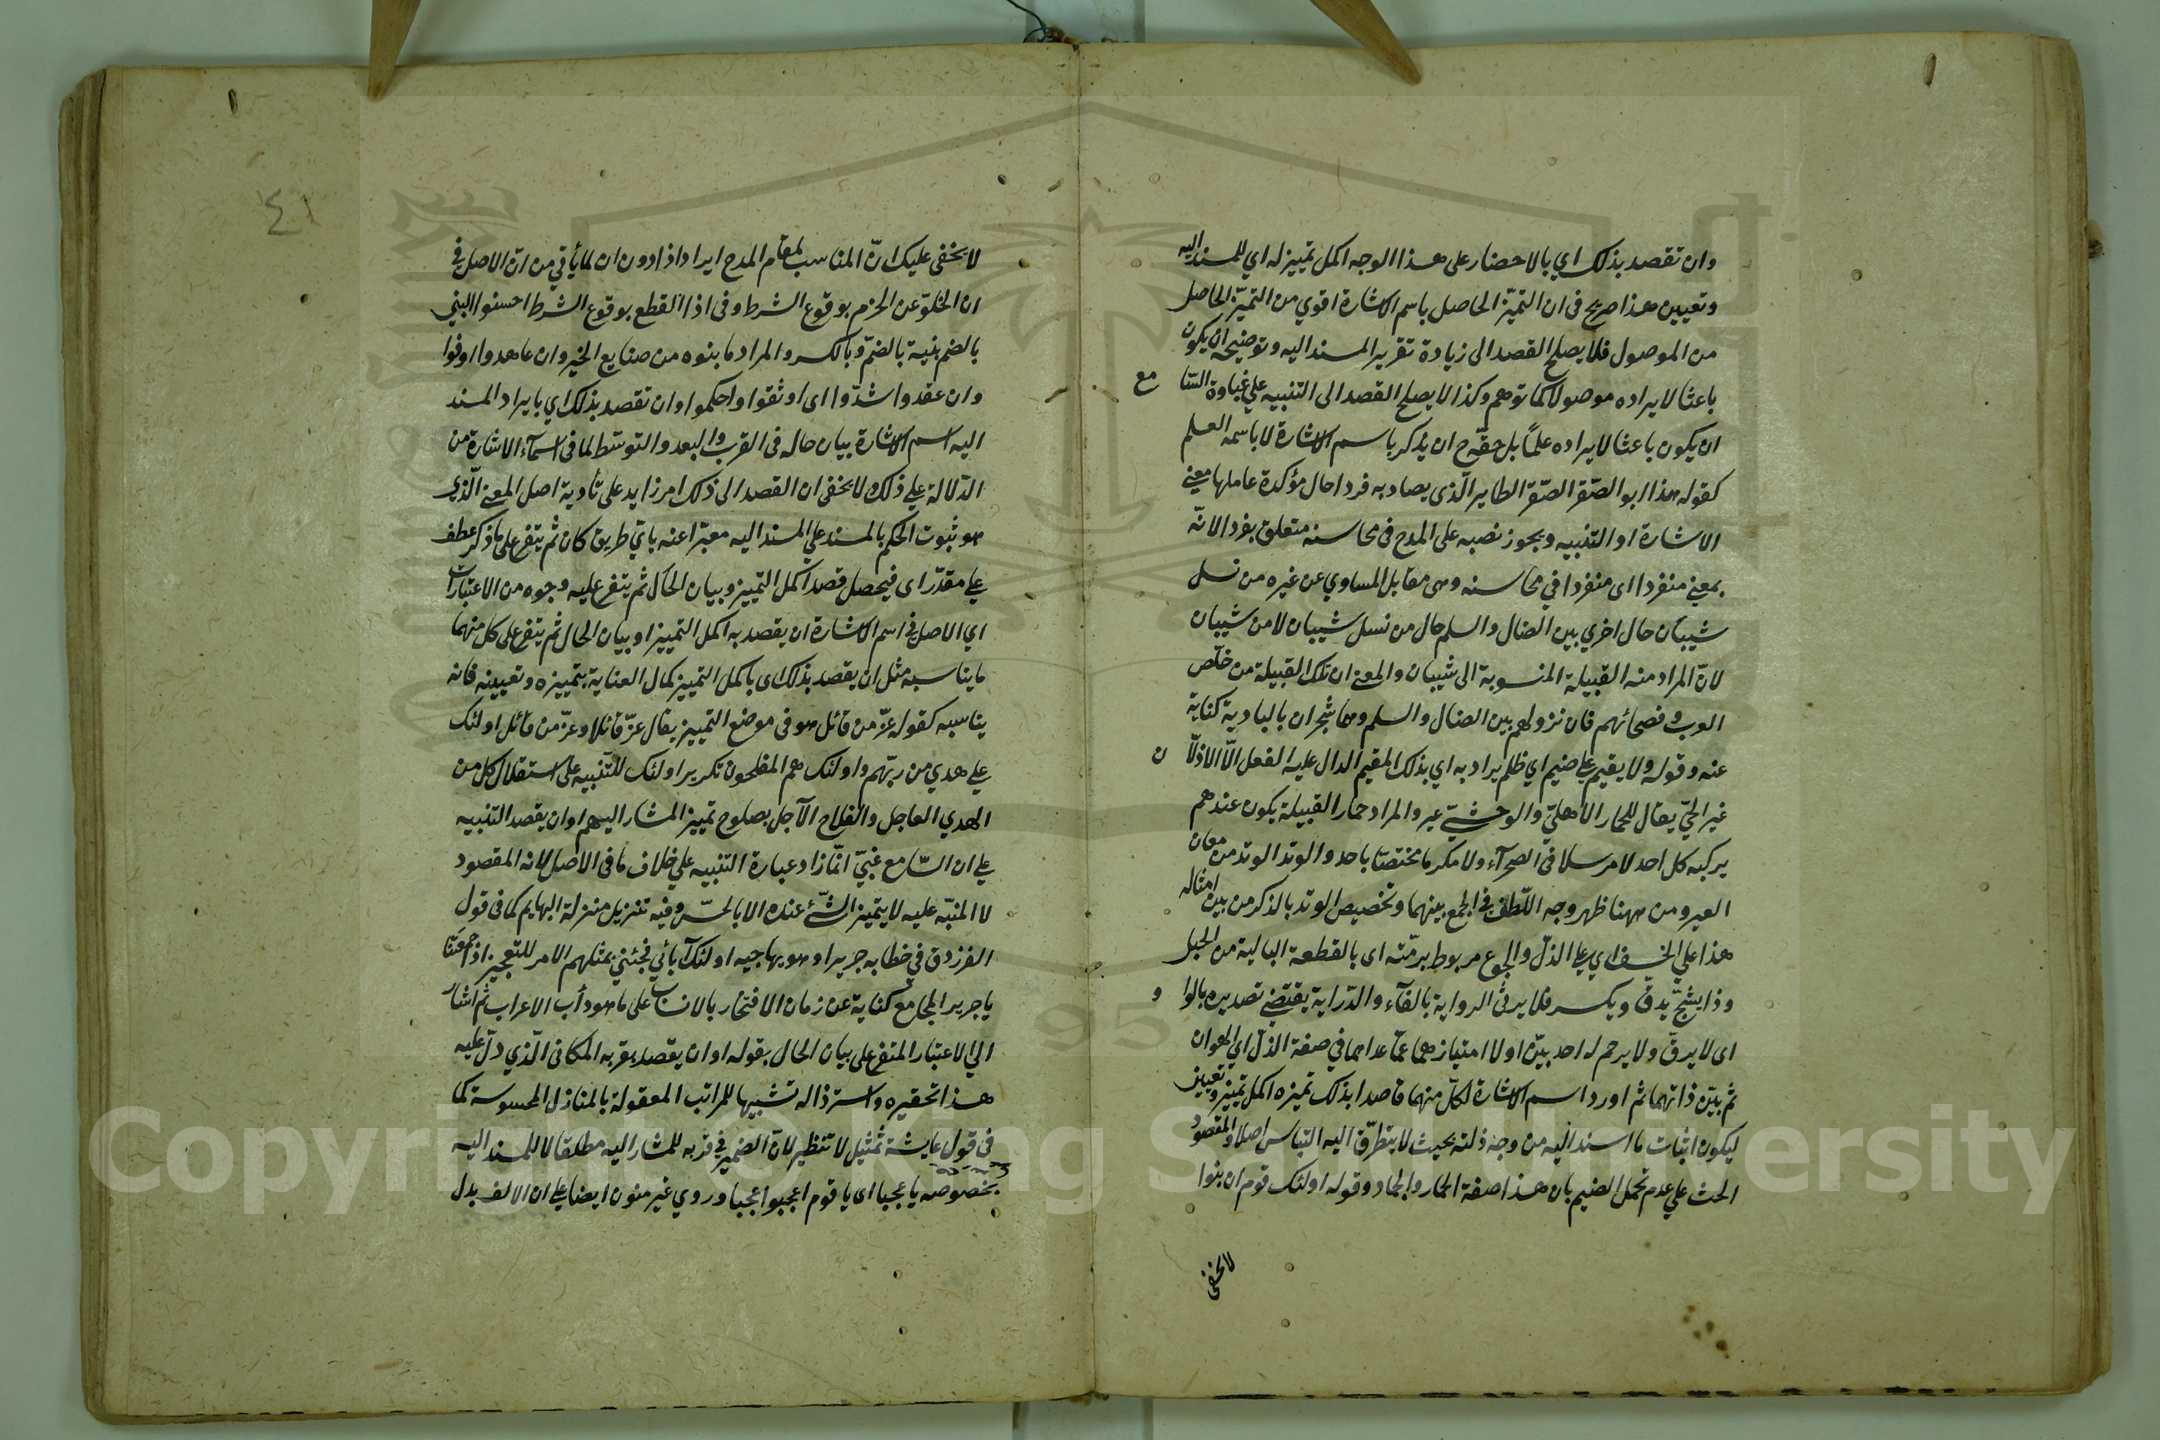 وان تقصد بذلك اي بالاحضار على هذا الوجه اكمل تمييز له اي للمسند اليه
وتعيين هذا صريح في ان التميّز الحاصل باسم الاشارة اقوي من التميّز الحاصل
من الموصول فلا يصلح القصد الى زيادة تقرير المسند اليه وتوضيحه ان يكون
باعثا لايراده موصولا كما توهم وكذا لا يصلح القصد الى التنبيه علي غباوة السّا
مع
ان يكون باعثا لايراده علمًا بل حقّه ح ان يذكر باسم الاشارة لا باسمه العلم
كقوله هذا ابو الصّقر الصّقر الطاير الّذى يصاد به فردا حال مؤكدة عاملها معني
الاشارة او التنبيه ويجوز نصبه على المدح في محاسنه متعلق بفردا لانّه
بمعني منفردا اى منفردا في محاسنه وهى مقابل المساوي عن غيره من نسل
شيبان حال اخري بين الضال والسلم حال من نسل شيبان لا من شيبان
لانّ المراد منه القبيلة المنسوبة الى شيبان والمعنى ان تلك القبيلة من خلّص
العرب وفصحائهم فان نزولهم بين الضال والسلم وهما شجران بالبادية كناية
عنه وقوله ولا يقيم علي ضيم اي ظلم يراد به اي بذلك المقيم الدال عليه الفعل الّا الاذلّا
ن
غير الحيّ يقال للحمار الاهليّ والوحشيّ عير والمراد حمار القبيلة يكون عندهم
يركبه كل احد لا مرسلا في الصحرآء ولا مكرما مختصّا باحد والوتد الوتد من معان
العير ومن ههنا ظهر وجه اللّطف في الجمع بينهما وتخصيص الوتد بالذكر من بين امثاله
هذا علي الخسف اي علي الذلّ والجوع مربوط برمّته اى بالقطعة البالية من الحبل
وذا يشجّ يدقّ ويكسر فلا يرثى الرواية بالفآء والدّراية يقتضي تصديره بالوا
و
اى لا يرقّ ولا يرحم له احد بيّن اولا امتيازهما عمّا عداهما في صفة الذلّ اي الهوان
ثم بيّن ذاتهما ثم اورد اسم الاشارة لكلّ منهما قاصدا بذلك تميزه اكمل تمييز وتعيين
ليكون اثبات ما اسند اليه من وجه ذلته بحيث لا يتطرّق اليه التباس اصلا والمقصود
الحث علي عدم تحمل الضيم بان هذا صفة الحمار والجماد وقوله اولئك قوم ان بنوا
لا يخفى
٤١
لا يخفى عليك انّ المناسب لمقام المدح ايراد اذا دون ان لما يأتي من انّ الاصل في
ان الخلوّ عن الجزم بوقوع الشرط وفى اذا القطع بوقوع الشرط احسنوا البني
بالضم بنية بالضمّ وبالكسر والمراد ما بنوه من صنايع الخير وان عاهدوا اوفوا
وان عقدوا شدّوا اى اوثقوا واحكموا وان تقصد بذلك اي بايراد المسند
اليه اسم الاشارة بيان حاله في القرب والبعد والتوسّط لما في اسمآء الاشارة من
الدّلالة علي ذلك ولا يخفى ان القصد الى ذلك امر زايد على تأدية اصل المعنى الّذي
هو ثبوت الحكم بالمسند علي المسند اليه معبّرا عنه باىّ طريق كان ثم يتفرع على ما ذكر عطف
علي مقدّر اى فيحصل قصد اكمل التمييز وبيان الحال ثم يتفرع عليه وجوه من الاعتبارات
اي الاصل في اسم الاشارة ان يقصد به اكمل التمييز او بيان الحال ثم يتفرع على كل منهما
ما يناسبه مثل ان يقصد بذلك اى باكمل التمييز كمال العناية بتمييزه وتعيينه فانه
يناسبه كقوله عزّ من قائل هو في موضع التمييز يقال عزّ قائلا وعزّ من قائل اولئك
علي هدي من ربّهم واولئك هم المفلحون تكرير اولئك للتّنبيه على استقلال كل من
الهدي العاجل والفلاح الآجل بصلوح تمييز المشار اليهم او ان يقصد التنبيه
علي ان السّامع غبيّ انّما زاد عبارة التنبيه علي خلاف ما في الاصل لانه المقصود
لا المنبّه عليه لا يتميز الشّيء عنده الا بالحسّ وفيه تنزيل منزلة البهايم كما في قول
الفرزدق في خطابه جريرا وهو يهاجيه اولئك آبائي فجئني بمثلهم الامر للتعجيز اذا جمعتنا
يا جرير المجامع كناية عن زمان الافتخار بالانساب على ما هو دأب الاعراب ثم اشار
الي الاعتبار المتفرع على بيان الحال بقوله او ان يقصد بقربه المكاني الّذي دلّ عليه
هذا تحقيره واسترذاله تشبيها للمراتب المعقولة بالمنازل المحسوسة كما
في قول عايشة تمثيل لا تنظير لانّ الضمير في قربه للمشار اليه مطلقا لا للمسند اليه
بخصوصه يا عجبا اى يا قوم اعجبوا عجبا وروي غير منون ايضا علي ان الالف بدل
Copyright © King Saud University